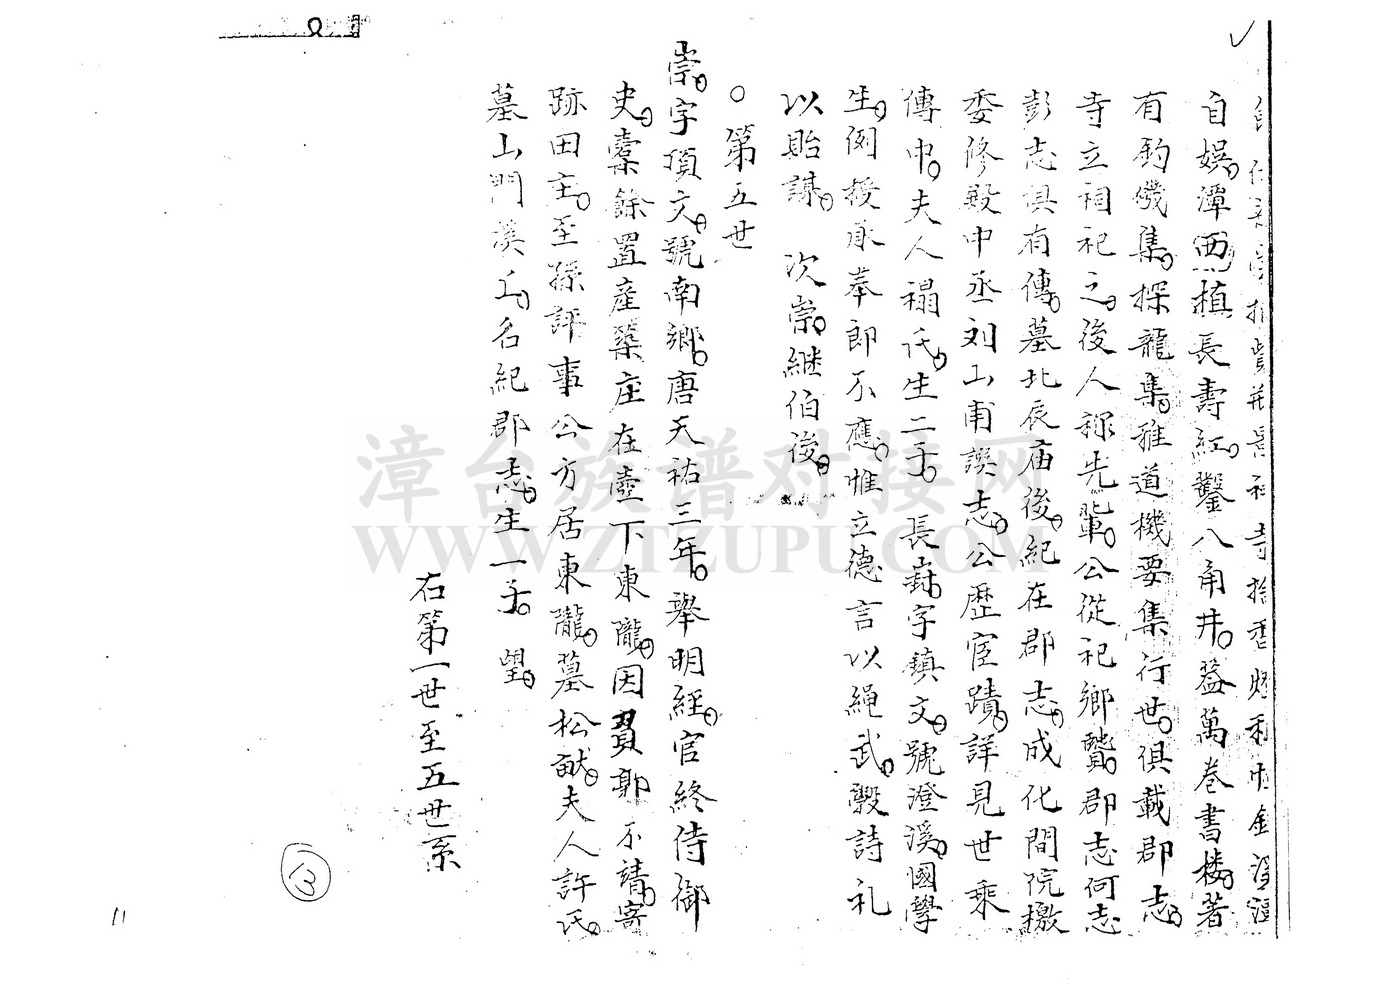 自娛潭西植長壽紅鑿八角井葢萬卷書楼著
有釣磯集探龍集雅道機要集行世俱載郡志
寺立祠祀之後人称先輩公從祀鄉賢郡志何志
彭志俱有傳墓北辰庙後紀在郡志成化間院檄
委修殿中丞刘山甫譔志公歷宦蹟詳見世乘
傳中夫人禤氏生二子 長㟽字鎮文號澄溪國學
生例授承奉郎不應惟立德言以繩武穀詩礼
以貽謀 次崇継伯後
○第五世
崇字頂文號南鄉唐天祐三年舉明經官終侍御
史橐餘置產築庄在壺下東隴因賀郭不靖寄
跡田主至孫評事公方居東隴墓松猷夫人許氏
墓山門漢上名紀郡志生一子 望
右第一世至五世系
13
11
漳台族谱对接网
WWW.ZTZUPU.COM